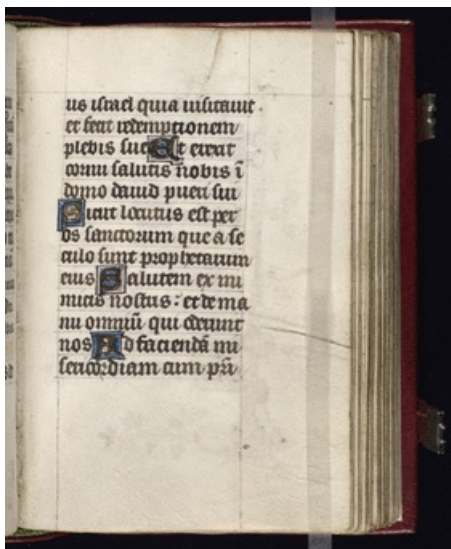 us israel quia uisitauit
et fecit redemptionem
plebis sue Et erexit
cornu salutis nobis ī
domo dauid pueri sui
Sicut locutus est per
os sanctorum que a se
culo sunt prophetarum
eius Salutem ex ini
micis nostris : et de ma
nu omniū qui oderunt
nos Ad faciendā mi
sericordiam cum pr̄i